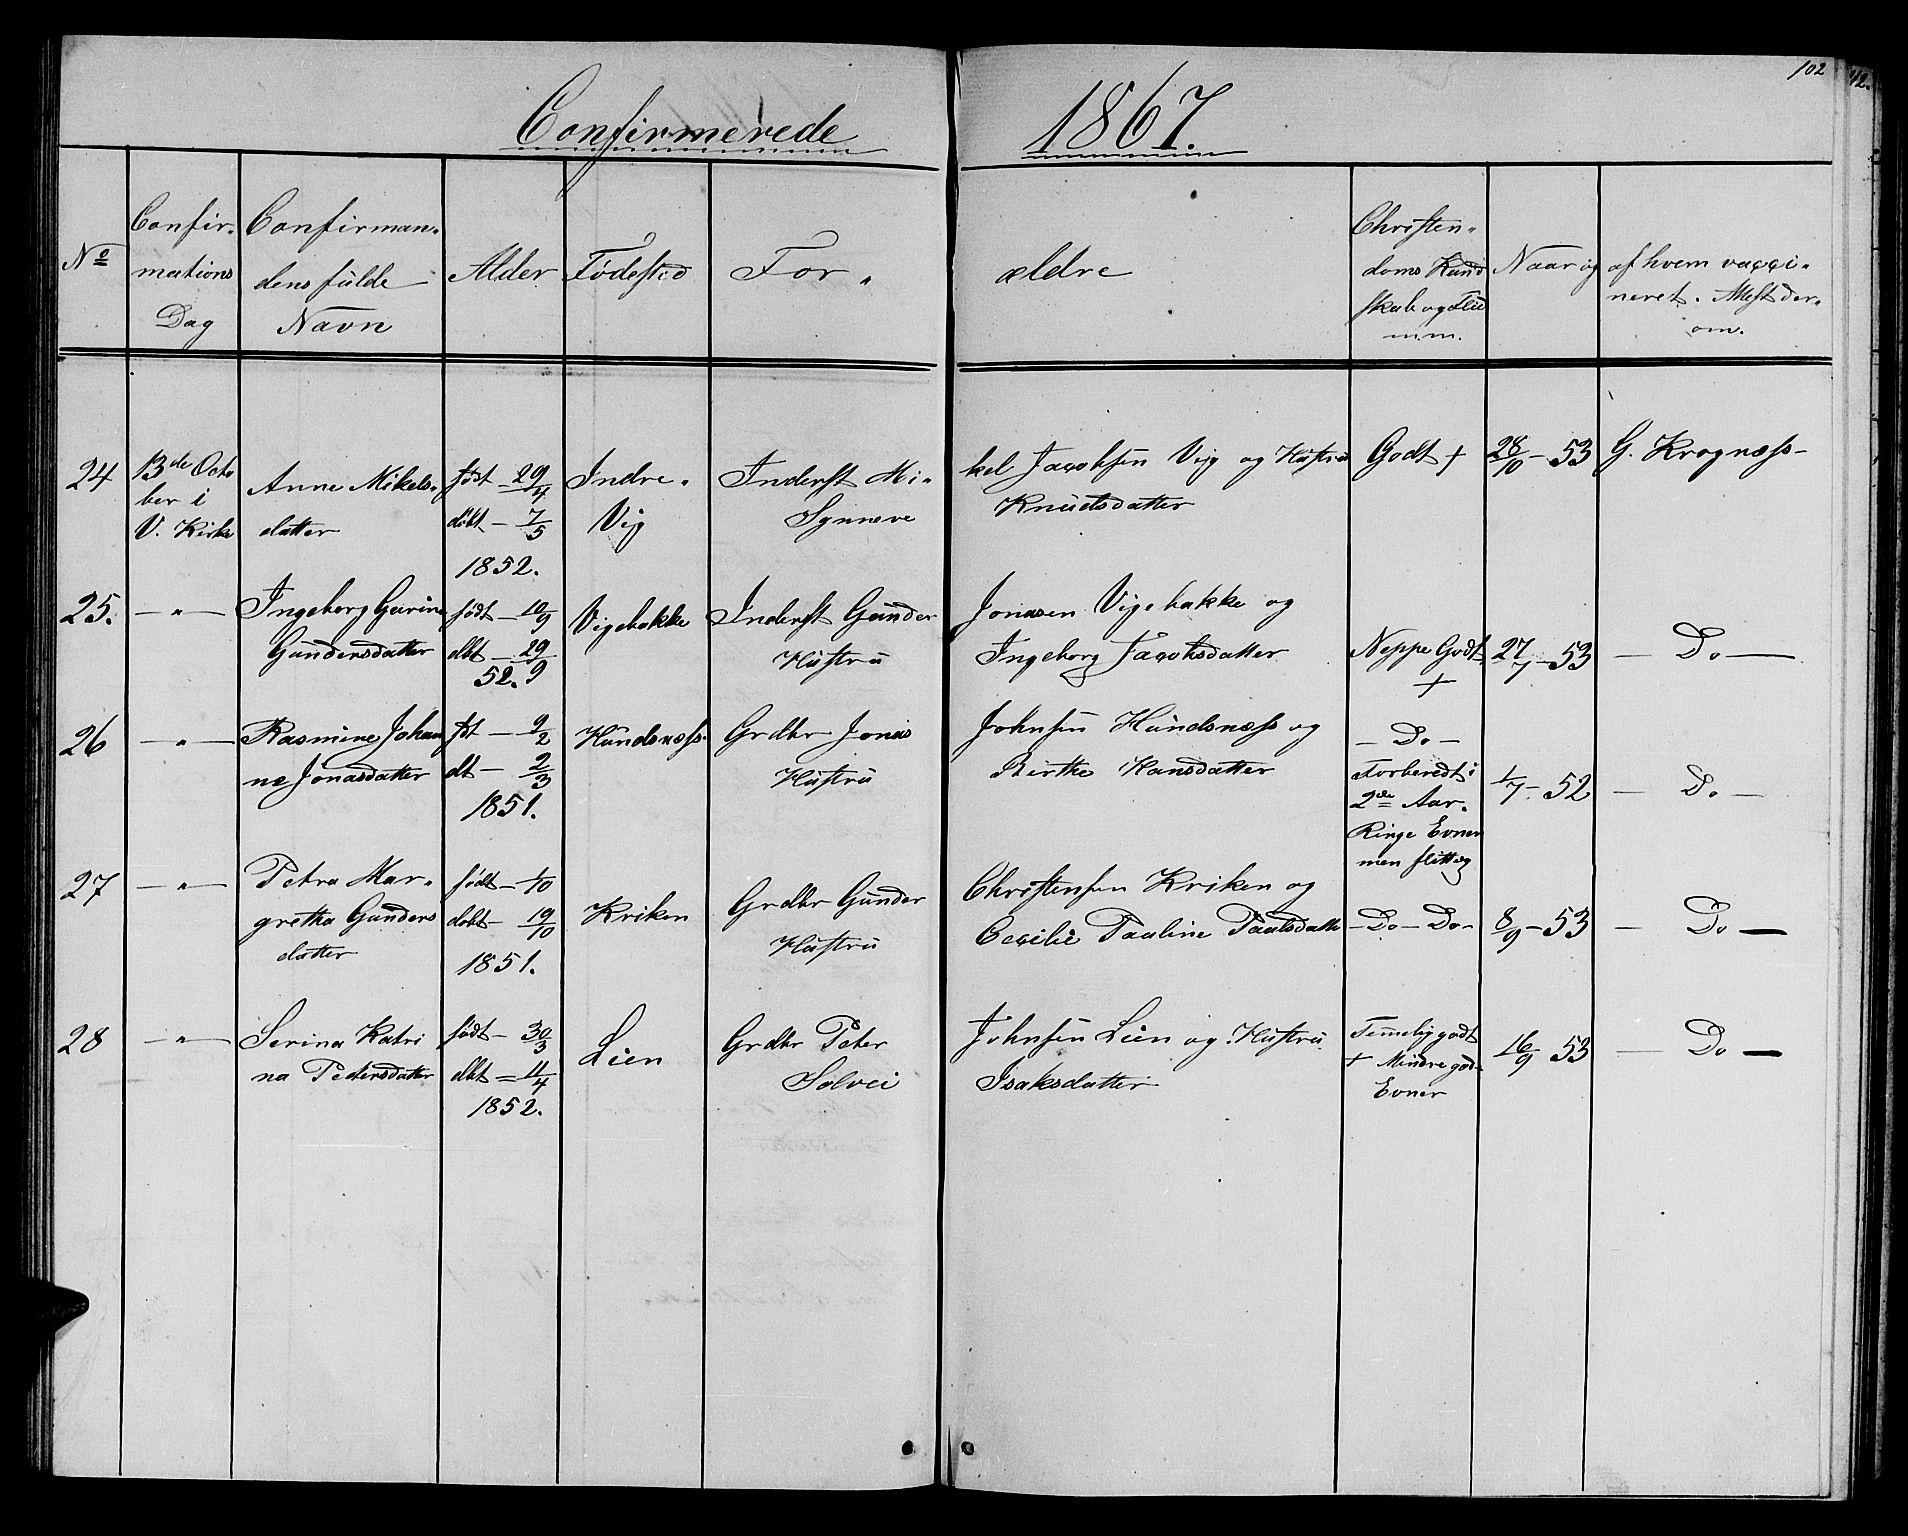 102
42.
Confirmerede 1867.
No
Confir-
mations
Dag
Confirman-
dens fulde
Navn
Alder
Fødested
For-
ældre
Christen-
doms Kund
skab og Flid
m.m.
Naar og
af hvem vacci-
neret. Attest der-
om.
24
13de Octo
ber i
V. Kirke
Anne Mikels-
datter
født - 29/4
døbt - 7/5
1852.
Indre-
Vig
Inderst Mi-
kel Jacobsen Vig og Hustru
Synneve
Knudsdatter
Godt +
28/10 - 53
G. Krognæss-
25.
— " —
Ingeborg Gurine
Gundersdatter
født - 10/9
dbt - 29/9
52.
Vigebakke
Inderst Gunder
Jonasen Vigebakke og
Hustru
Ingeborg Jacobsdatter
Neppe Godt
+
27/7 - 53
— Do —
26
— " —
Rasmine Johan
ne Jonasdatter
fdt - 9/2
dt - 2/3
1851.
Hundsnæss.
Grdbr Jonas
Johnsen Hundsnæss og
Hustru
Birthe Hansdatter
- Do -
Forberedt i
2det Aar.
Ringe Evner
men flittig
1/7 - 52
— Do —
27
— " —
Petra Mar-
gretha Gunders
datter
født - 1/10
døbt - 19/10
1851.
Kriken
Grdbr Gunder
Christensen Kriken og
Hustru
Cecilie Pauline Paulsdatte
- Do - Do -
8/9 - 53
— Do —
28
— " —
Serina Katri
na Pedersdatter
født - 30/3
dbt = 11/4
1852.
Lien
Grdbr Peter
Johnsen Lien og Hustru
Solvei
Isaksdatter
Temelig godt
+ Mindre god
Evner
16/9 53
— Do —